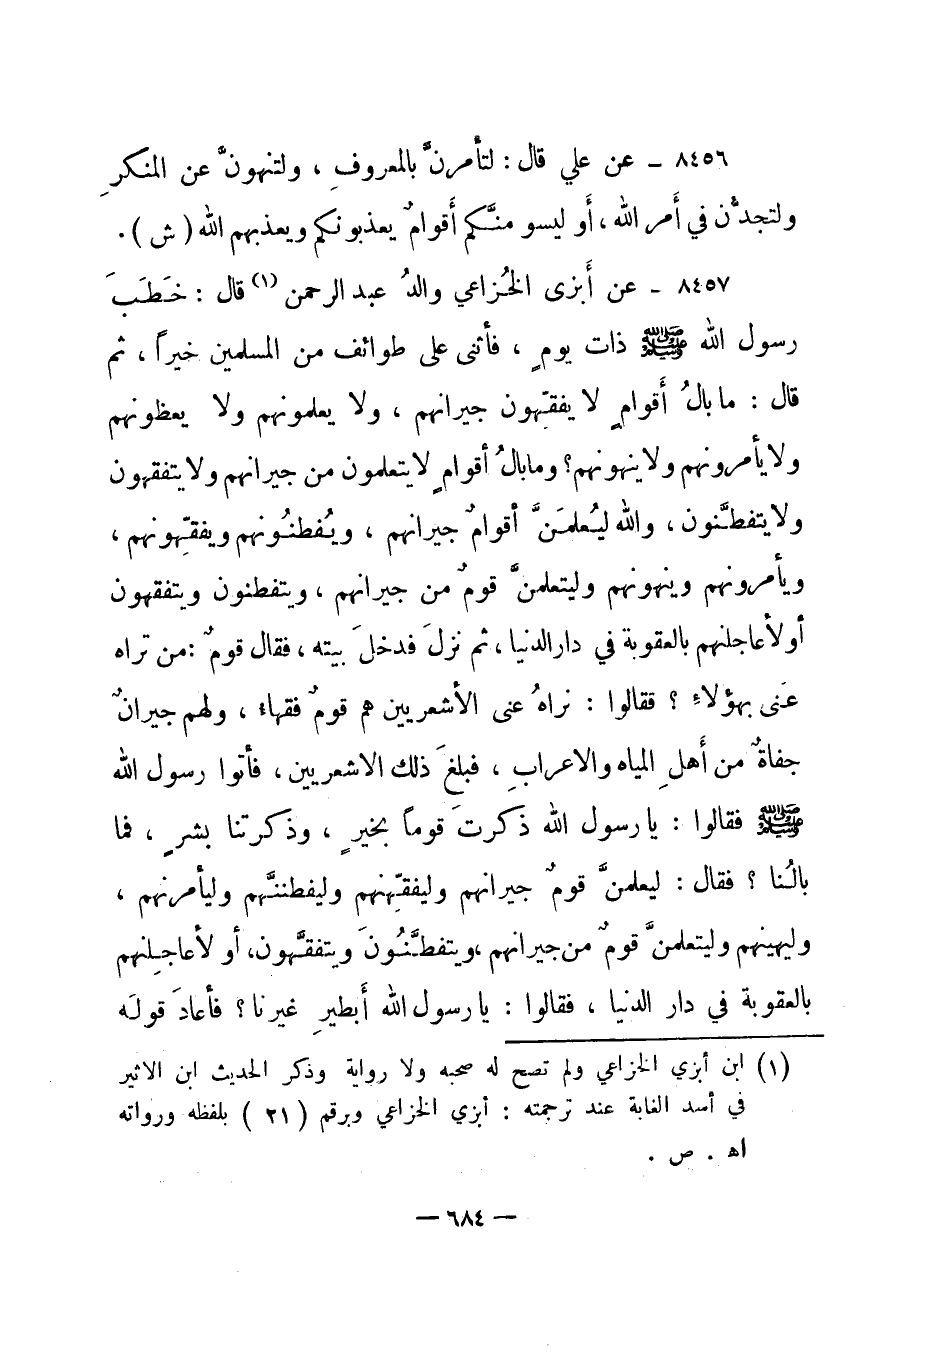 ٨٤٥٦ ـ عن علي قال : لتأمرنَّ بالمعروفِ ، ولتنهونَّ عن المنكرِ
ولتجدُّن في أَمر الله ، أَو ليسو منَّكم أَقوامٌ يعذبونكم ويعذبهم الله ( ش ) .
٨٤٥٧ ـ عن أَبزى الخُزاعي والدُ عبد الرحمن (١) قال : خَطَبَ
رسول الله ﷺ ذات يومٍ ، فأثنى على طوائف من المسلمين خيراً ، ثم
قال : ما بالُ أَقوامٍ لا يفقّهون جيرانهم ، ولا يعلمونهم ولا يعظونهم
ولا يأمرونهم ولا ينهونهم ؟ وما بالُ أقوامٍ لا يتعلمون من جيرانهم ولا يتفقهون
ولا يتفطَّنون ، والله ليُعلمَنَّ أقوامٌ جيرانهم ، ويُفطنُونهم ويفقّهونهم ،
ويأمرونهم وينهونهم وليتعلمنَّ قومٌ من جيرانهم ، ويتفطنون ويتفقهون
أو لأعاجلنهم بالعقوبة في دار الدنيا ، ثم نزلَ فدخلَ بيته ، فقال قومٌ : من تراه
عَنى بهؤلاءِ ؟ فقالوا : نراهُ عنى الأشعريين هم قومٌ فقهاء ، ولهم جيرانٌ
جفاةٌ من أَهلِ المياه والاعرابِ ، فبلغَ ذلك الاشعريين ، فأتوا رسول الله
ﷺ فقالوا : يا رسول الله ذكرتَ قوماً بخيرٍ ، وذكرتنا بشرٍ ، فما
بالُنا ؟ فقال : ليعلمنَّ قومٌ جيرانهم وليفقّهنهم وليفطننَّهم وليأمرنهم ،
وليهينهم وليتعلمنَّ قومٌ من جيرانهم ، ويتفطَّنُونَ ويتفقَّهون ، أو لأعاجِلنهم
بالعقوبة في دار الدنيا ، فقالوا : يا رسول الله أَبطيرِ غيرنا ؟ فأعادَ قولَه
(١) ابن أبزي الخزاعي ولم تصح له صحبه ولا رواية وذكر الحديث ابن الاثير
في أسد الغابة عند ترجمته : أبزي الخزاعي وبرقم ( ٢١ ) بلفظه ورواته
اه . ص .
— ٦٨٤ —